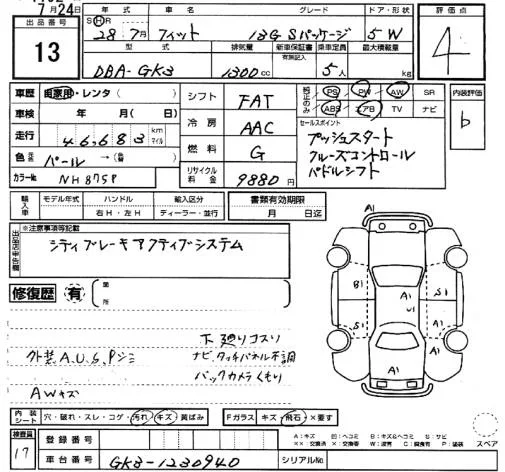 7月24日
出品番号
13
年式 車名 グレード ドア・形状
SHR
28年7月 フィット 13G Sパッケージ 5W
型式 排気量 新車保証書 乗車定員 最大積載量
有無記入
DBA-GK3 1300cc 5人 kg
評価点
4
車歴 自家用・レンタ( )
車検 年 月( )
走行 46,683 km マイル
色 パール →( )
カラーNo. NH875P
シフト FAT
冷房 AAC
燃料 G
リサイクル料金 9880円
純正のみ PS PW AW SR
ABS エアB TV ナビ
内装評価
b
セールスポイント
プッシュスタート
クルーズコントロール
パドルシフト
輸入車 モデル年式 ハンドル 輸入区分 書類有効期限
右H・左H ディーラー・並行 月 日迄
出品店申告欄
※注意事項等記載
シティブレーキアクティブシステム
修復歴 有 箇所
下廻りコスリ
外装A,U,S,Pシミ ナビ,タッチパネル不調
バックカメラくもり
AWキズ
A1
B1 S1 A1 U1 S1
A1
A1
内装シート 穴・破れ・スレ・コゲ・汚れ・キズ・黄ばみ Fガラス キズ・飛石・×要す
検査員
17
登録番号
車台番号 GK3-1230940 シリアルNo.
A:キズ U:ヘコミ B:キズ&ヘコミ S:サビ
スペア